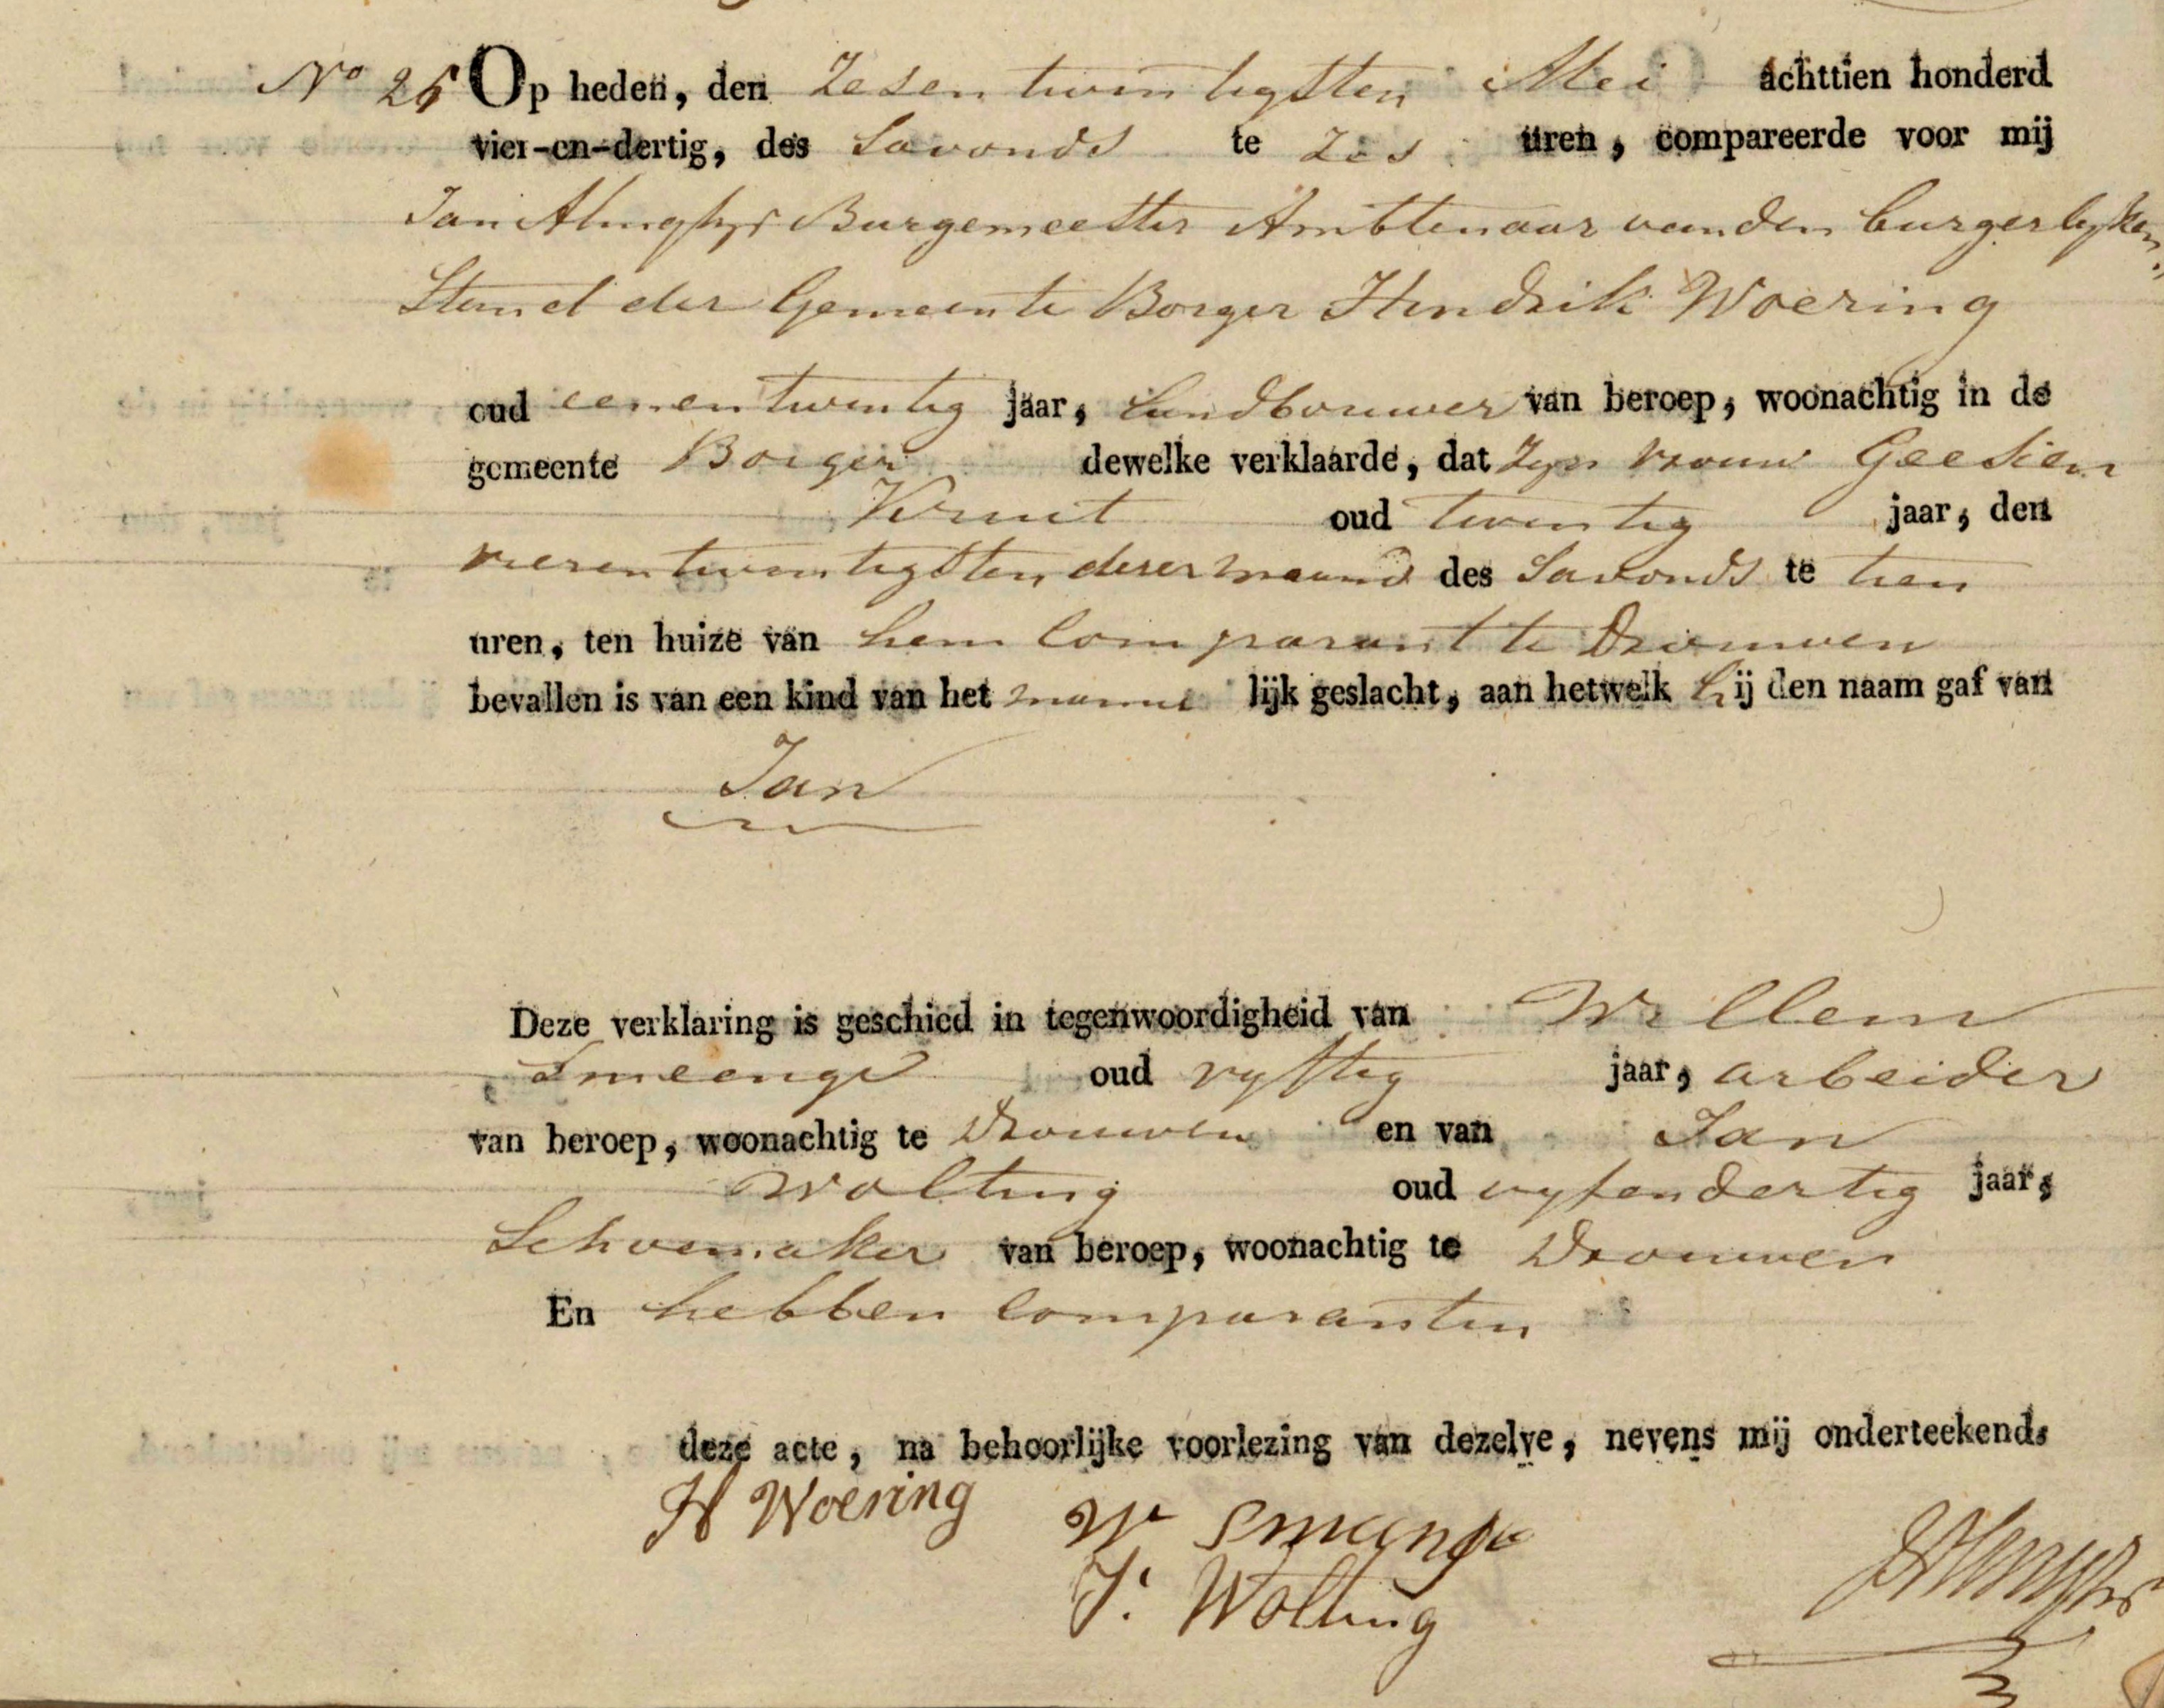 No 25 Op heden, den Zesen twintigsten Mei achttien honderd
vier-en-dertig, des Savonds te Zes uren, compareerde voor mij
Jan Alingh Burgemeester Ambtenaar van den burgerlyken
Stand der Gemeente Borger Hendrik Woering
oud eenentwintig jaar, Landbouwer van beroep, woonachtig in de
gemeente Borger dewelke verklaarde, dat Zyn vrouw Geesien
oud twintig jaar, den
vierentwintigsten dezer maand des Savonds te tien
uren, ten huize van hem Comparant te Drouwen
bevallen is van een kind van het manne lijk geslacht, aan hetwelk hij den naam gaf van
Jan
Deze verklaring is geschied in tegenwoordigheid van Willem
Smeenge oud vyftig jaar, arbeider
van beroep, woonachtig te Drouwen en van Jan
Wolting oud vyfendertig jaar,
Schoemaker van beroep, woonachtig te Drouwen
En hebben Comparanten
deze acte, na behoorlijke voorlezing van dezelve, nevens mij onderteekend.
H Woering
W Smeenge
J. Wolting